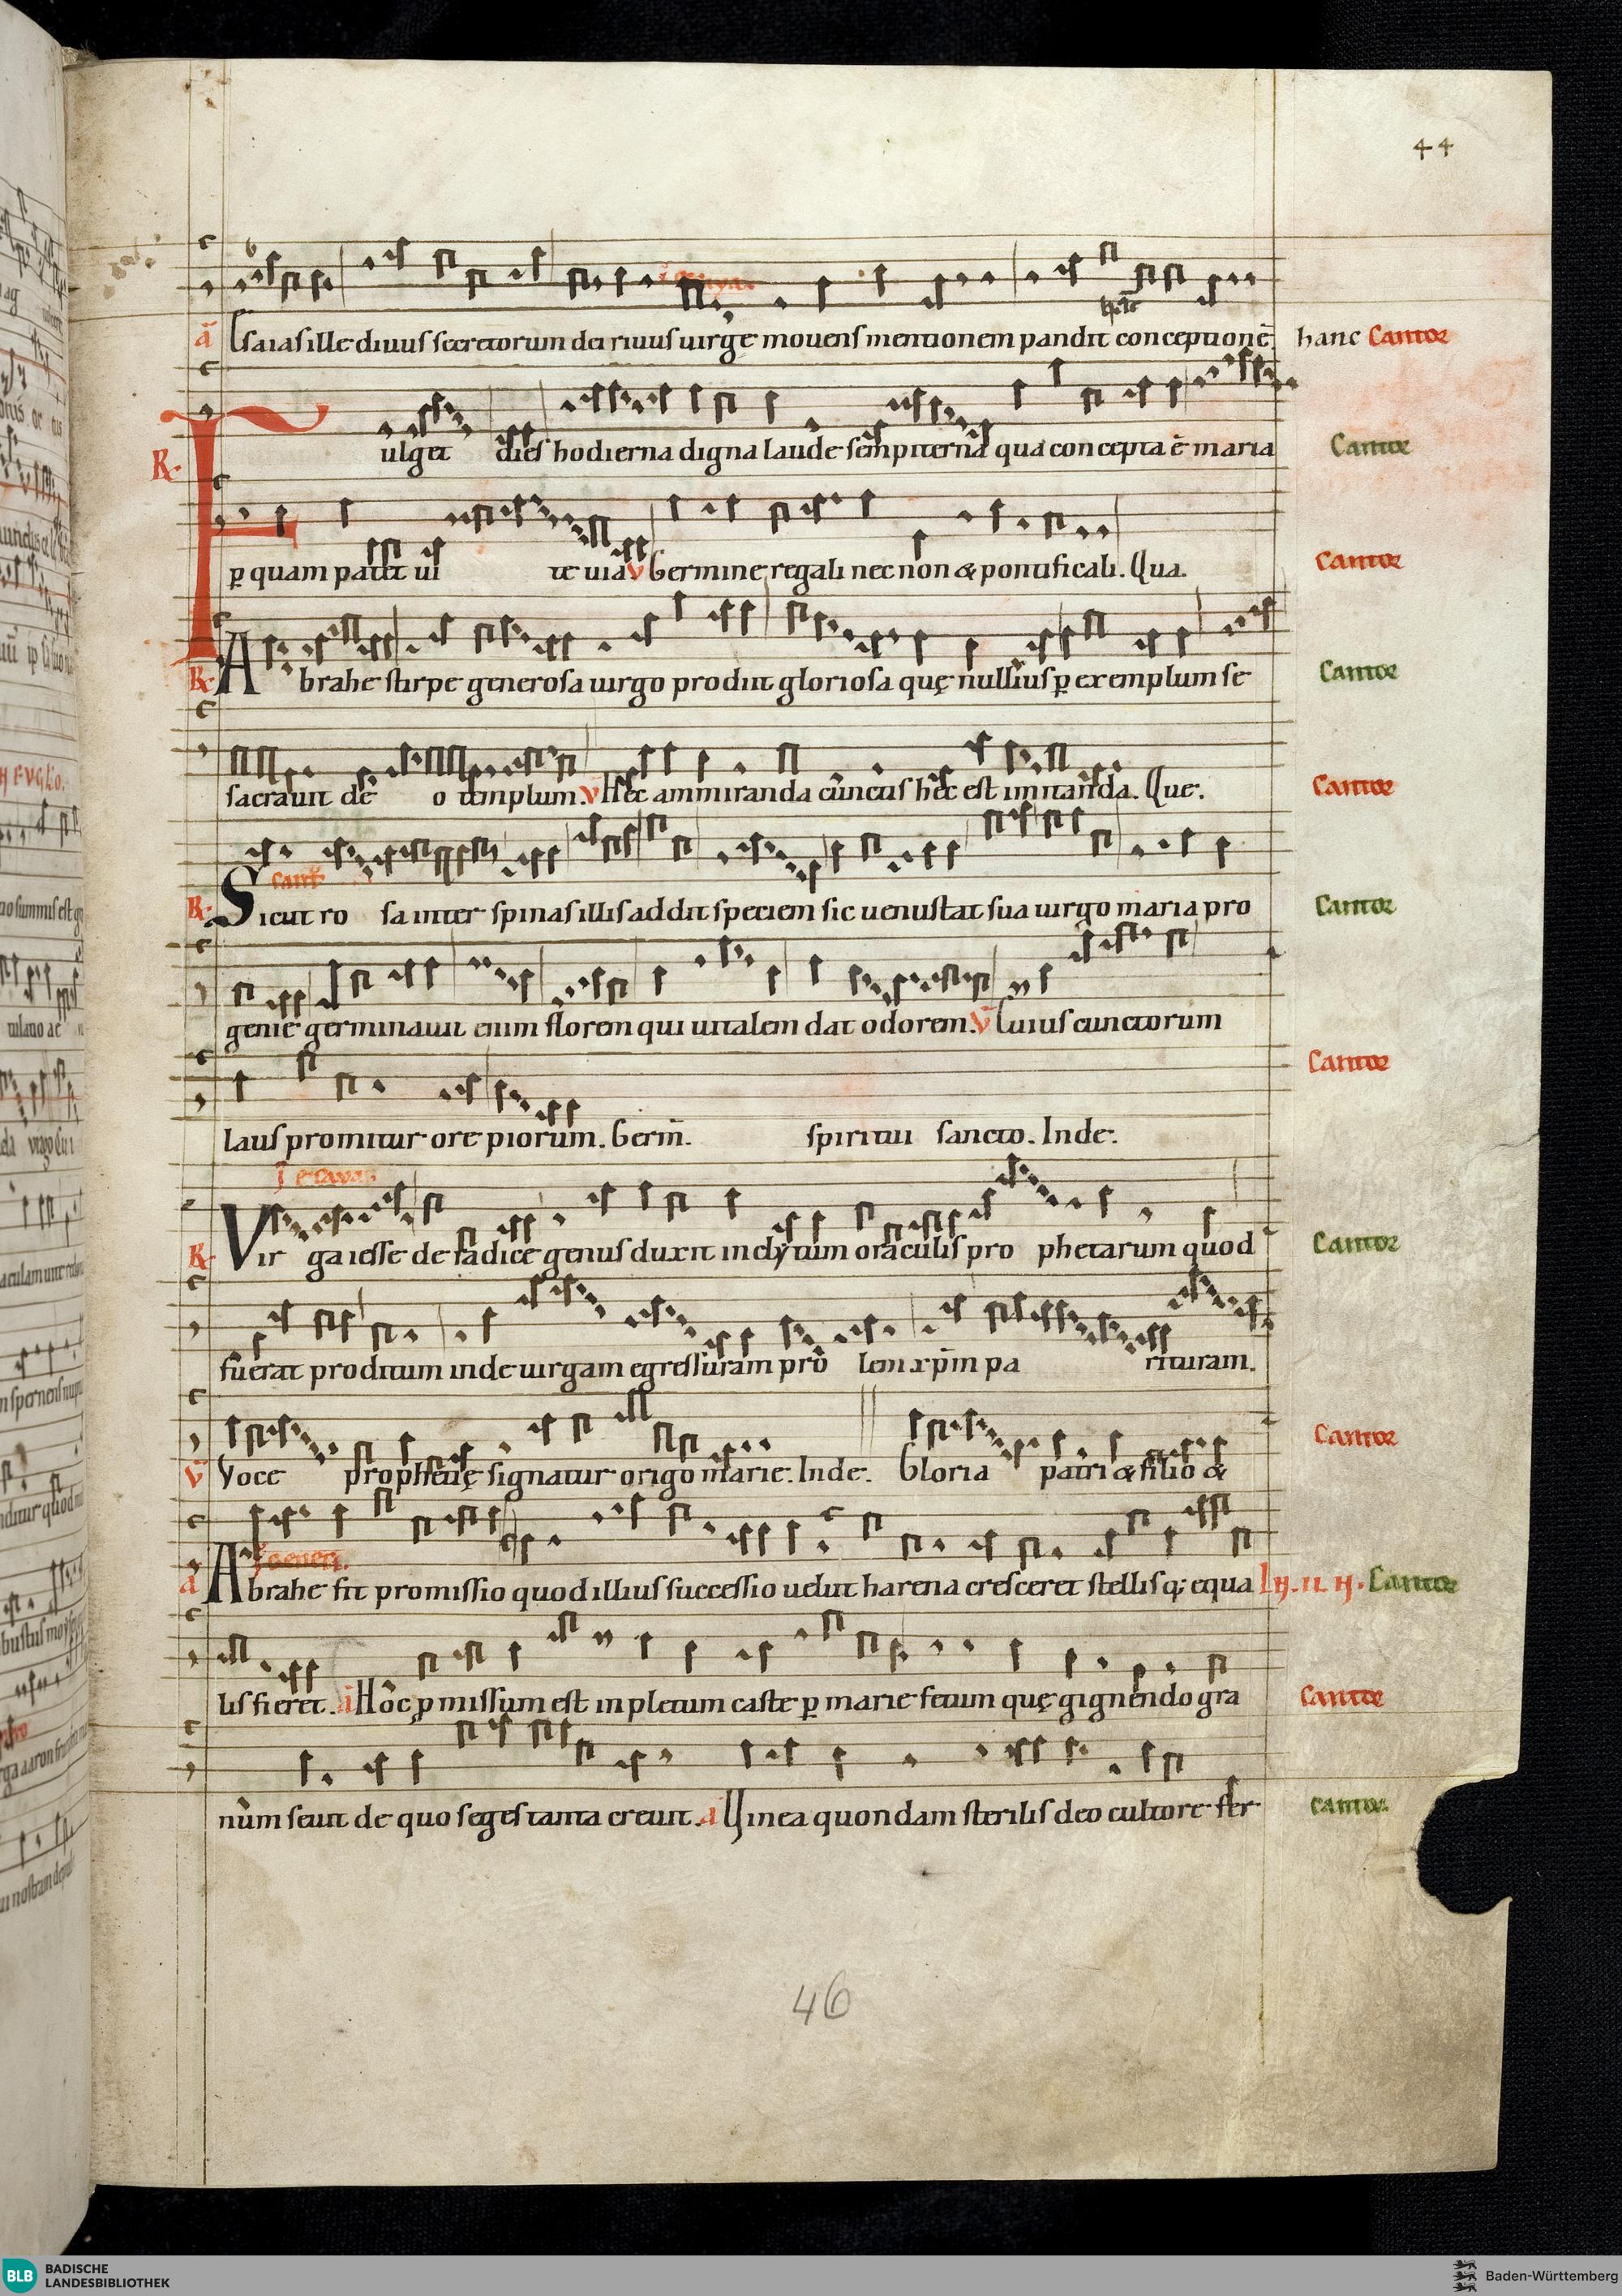 44
a̅ Esaias ille diuus secretorum dei riuus uirge mouens mentionem pandit conceptione̅ hanc Cantor
R. Fulget dies hodierna digna laude sempiterna qua concepta e̅ maria Cantor
ꝑ quam patet ui te uia V Germine regali nec non & pontificali. Qua. Cantor
R. Abrahe stirpe generosa uirgo prodiit gloriosa quę nullius ꝑ exemplum se Cantor
sacrauit de o templum. V Hęc ammiranda cunctis hęc est imitanda. Que. Cantor
R. Sicut ro sa inter spinas illis addit speciem sic uenustat sua uirgo maria pro Cantor
genie germinauit enim florem qui uitalem dat odorem. V Cuius cunctorum
Cantor
laus promitur ore piorum. Germ̅. spiritui sancto. Inde.
R. Vir ga iesse de radice genus duxit inclytum oraculis pro phetarum quod Cantor
fuerat proditum inde uirgam egressuram pro lem xp̅m pa rituram.
V Voce prophetię signatur origo marie. Inde. Gloria patri & filio & Cantor
a̅ Abrahe fit promissio quod illius successio uelut harena cresceret stellisq; equa Cantor
lis fieret. a̅ Hoc ꝓmissum est inpletum caste ꝑ marie fetum quę gignendo gra Cantor
num seuit de quo seges tanta creuit. a̅ Uinea quondam sterilis deo cultore fer Cantor
46
BLB BADISCHE
LANDESBIBLIOTHEK
Baden-Württemberg